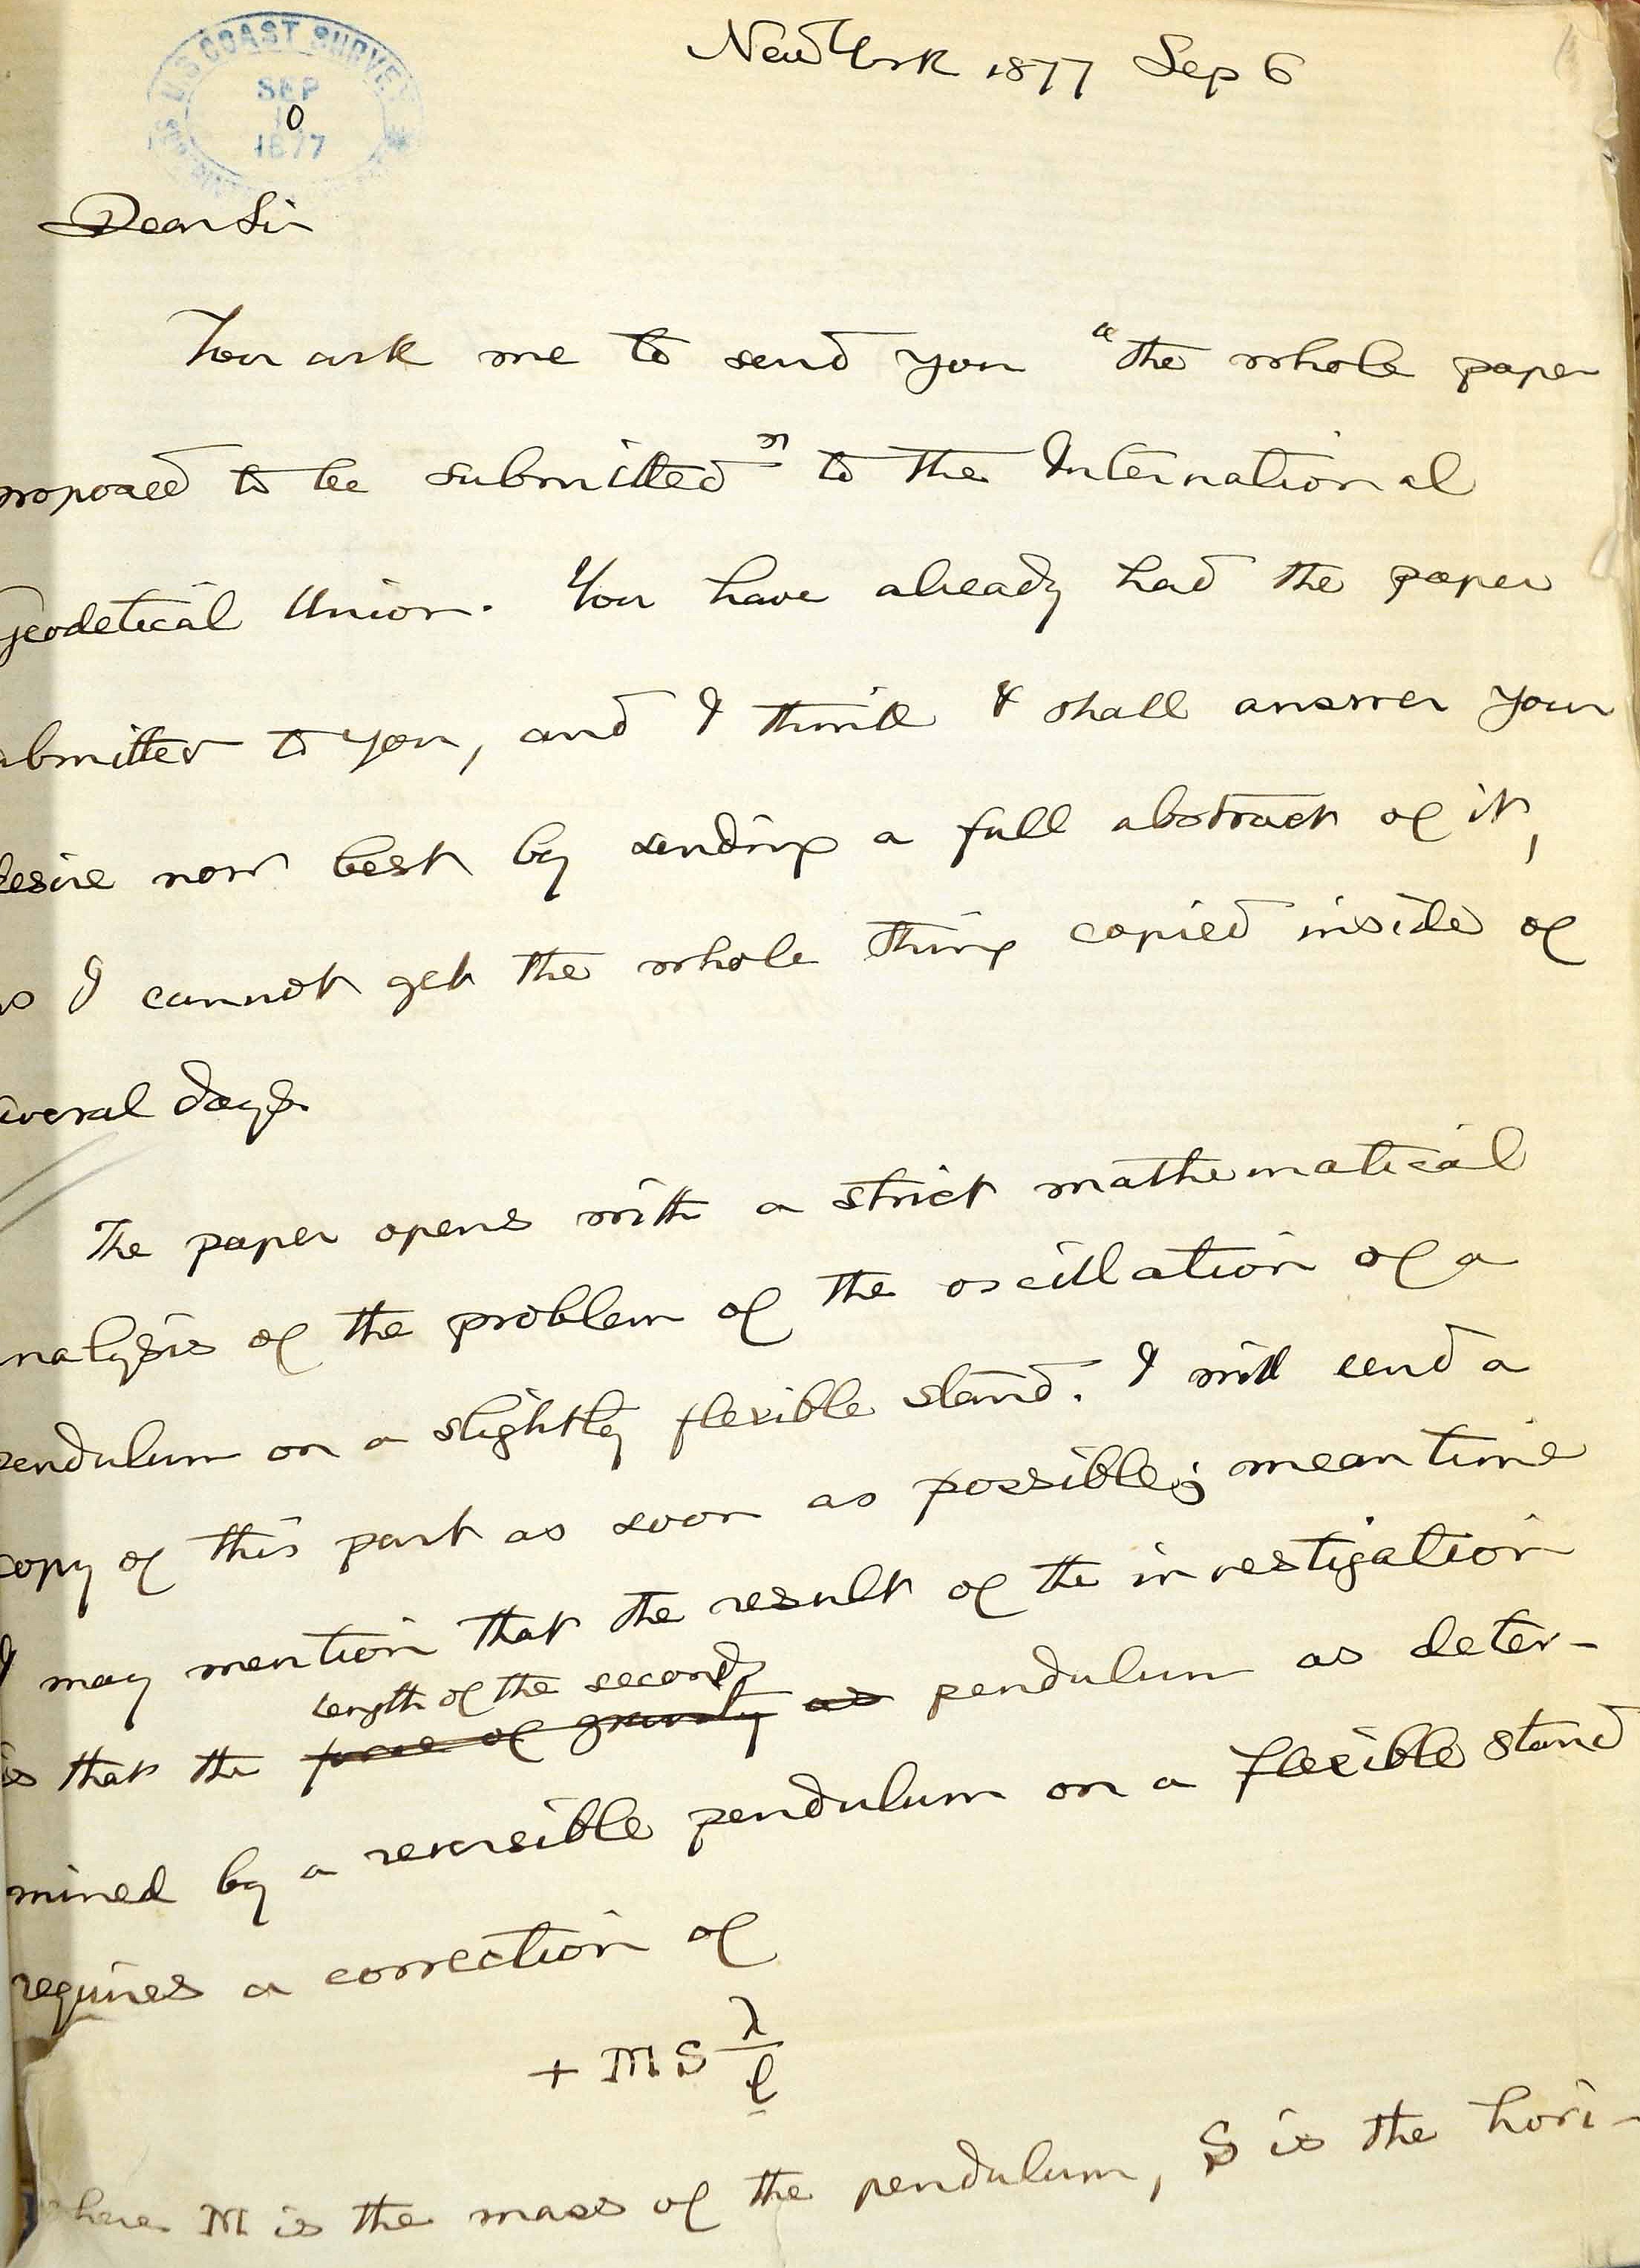 U.S. COAST SURVEY
SEP
10
1877
New York 1877 Sep 6
Dear Sir
You ask me to send you "the whole paper
proposed to be submitted" to the International
Geodetical Union. You have already had the paper
ubmitted to you, and I think I shall answer your
desire now best by sending a full abstract of it,
as I cannot get the whole thing copied inside of
several days.
The paper opens with a strict mathematical
analysis of the problem of the oscillation of a
pendulum on a slightly flexible stand. I will send a
copy of this part as soon as possible; meantime
I may mention that the result of the investigation
length of the seconds
is that the force of gravity as pendulum as deter-
mined by a reversible pendulum on a flexible stand
requires a correction of
+ M S λ/l
where M is the mass of the pendulum, S is the hori-